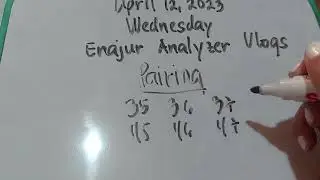 April 12, 2023
Wednesday
Enajur Analyzer Vlogs
Pairing
35 36 37
45 46 47